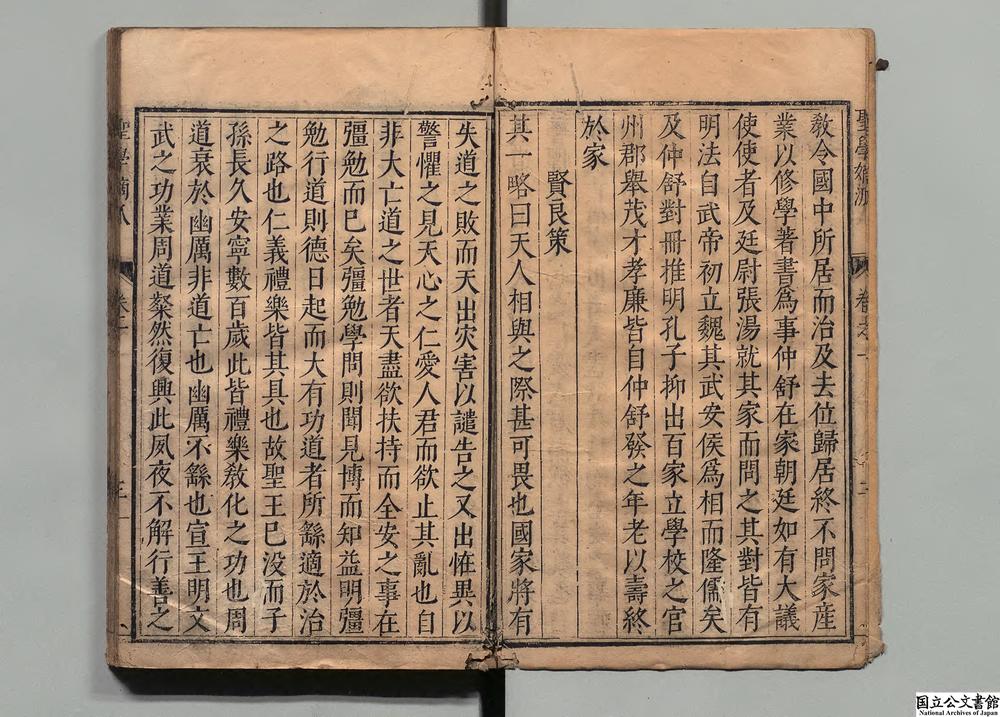 教令國中所居而治及去位歸居終不問家産
業以修學著書爲事仲舒在家朝廷如有大議
使使者及廷尉張湯就其家而問之其對皆有
明法自武帝初立魏其武安侯爲相而隆儒矣
及仲舒對冊推明孔子抑出百家立學校之官
州郡舉茂才孝廉皆自仲舒發之年老以壽終
於家
賢良策
其一略曰天人相與之際甚可畏也國家將有
失道之敗而天出灾害以譴告之又出恠異以
警懼之見天心之仁愛人君而欲止其亂也自
非大亡道之世者天盡欲扶持而全安之事在
彊勉而已矣彊勉學問則聞見博而知益明彊
勉行道則德日起而大有功道者所繇適於治
之路也仁義禮樂皆其具也故聖王已没而子
孫長久安寧數百歲此皆禮樂敎化之功也周
道衰於幽厲非道亡也幽厲不繇也宣王明文
武之功業周道粲然復興此夙夜不解行善之
卷二
三
国立公文書館
National Archives of Japan